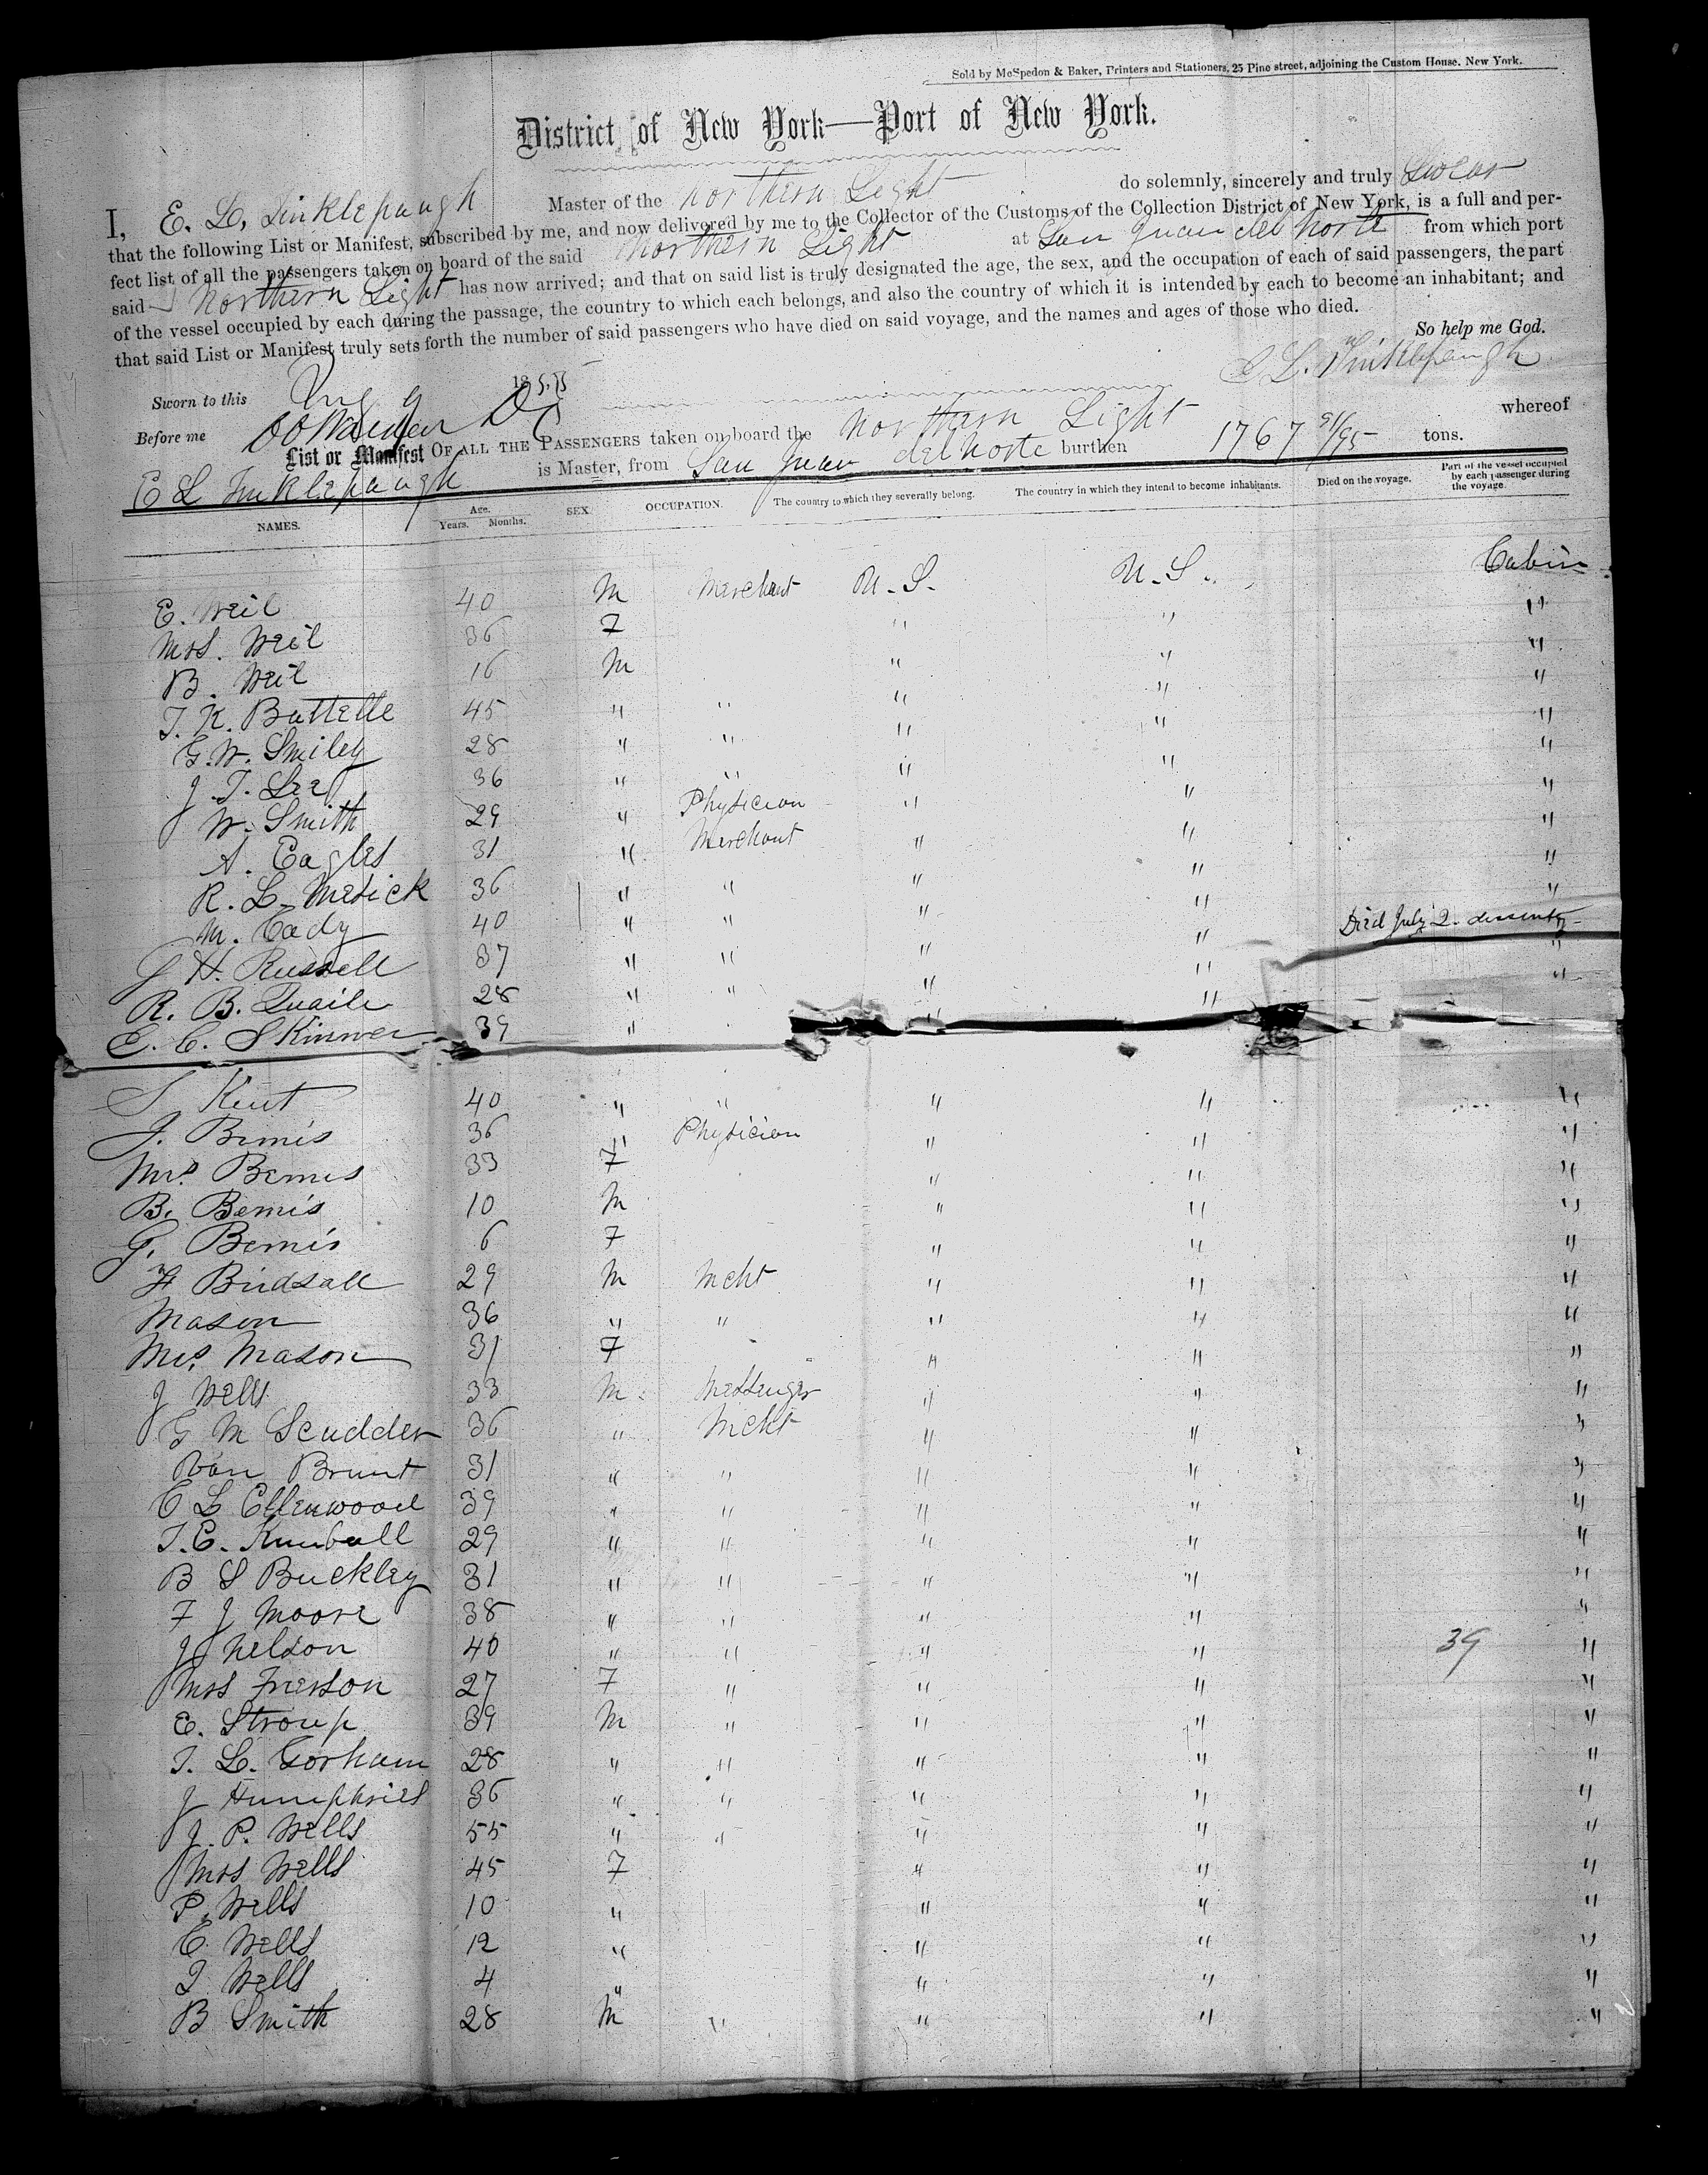 Sold by McSpedon & Baker, Printers and Stationers, 25 Pine street, adjoining the Custom House. New York.
District of New York—Port of New York.
I, E. L. Tinklepaugh Master of the Northern Light do solemnly, sincerely and truly Swear
that the following List or Manifest, subscribed by me, and now delivered by me to the Collector of the Customs of the Collection District of New York, is a full and per-
fect list of all the passengers taken on board of the said Northern Light at San Juan del Norte from which port
said Northern Light has now arrived; and that on said list is truly designated the age, the sex, and the occupation of each of said passengers, the part
of the vessel occupied by each during the passage, the country to which each belongs, and also the country of which it is intended by each to become an inhabitant; and
that said List or Manifest truly sets forth the number of said passengers who have died on said voyage, and the names and ages of those who died.
So help me God.
E L. Tinklepaugh
Sworn to this Aug 9 1855
Before me
List or Manifest OF ALL THE PASSENGERS taken on board the Northern Light whereof
E L Tinklepaugh is Master, from San Juan del Norte burthen 1767 91/95 tons.
NAMES. Age. Years. Months. SEX. OCCUPATION. The country to which they severally belong. The country in which they intend to become inhabitants. Died on the voyage. Part of the vessel occupied by each passenger during the voyage.
E. Weil 40 M Merchant U.S. U.S. Cabin
Mrs. Weil 36 F " " "
B. Weil 16 M " " "
T. K. Battelle 45 " " " " "
G. W. Smiley 28 " " " " "
J. T. Lee 36 " " " " "
W. Smith 29 " Physician " " "
A. Eagles 31 " Merchant " " "
R. L. Mesick 36 " " " " "
M. Cady 40 " " " " "
G H. Russell 37 " " " " Died July 2. dissenty "
R. B. Quaile 28 " " " " "
E. C. Skinner 39 " " "
S Kent 40 " " " " "
J. Bemis 36 " Physician " " "
Mrs. Bemis 33 F " " "
B. Bemis 10 M " " "
G. Bemis 6 F " " "
Birdsall 29 M Mcht " " "
Mason 36 " " " " "
Mrs. Mason 31 F " " "
J Wells 33 M Messenger " " "
G M Scudder 36 " Mcht " " "
Van Brunt 31 " " " " "
E L Ellenwood 39 " " " " "
T. E. Kimball 29 " " " " "
B S Buckley 31 " " " " "
F J Moore 38 " " " " "
J Nelson 40 " " " " 39 "
Mrs Frerson 27 F " " " "
E. Stroup 39 M " " " "
T. L. Gorham 28 " " " " "
J Humphries 36 " " " " "
J. P. Wells 55 " " " " "
Mrs Wells 45 F " " "
P. Wells 10 " " " "
C. Wells 12 " " " "
Wells 4 " " " "
B Smith 28 M " " " "